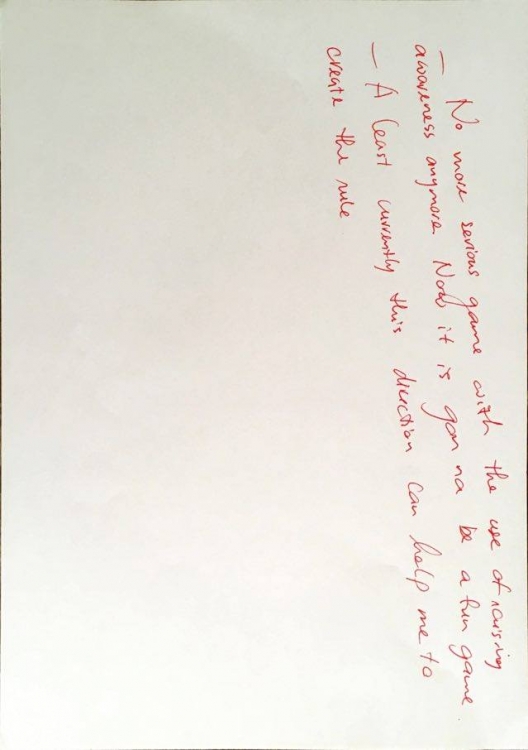 — No more serious game with the use of raising
awareness anymore. Now it is gon na be a fun game.
— A least currently this direction can help me to
create the rule